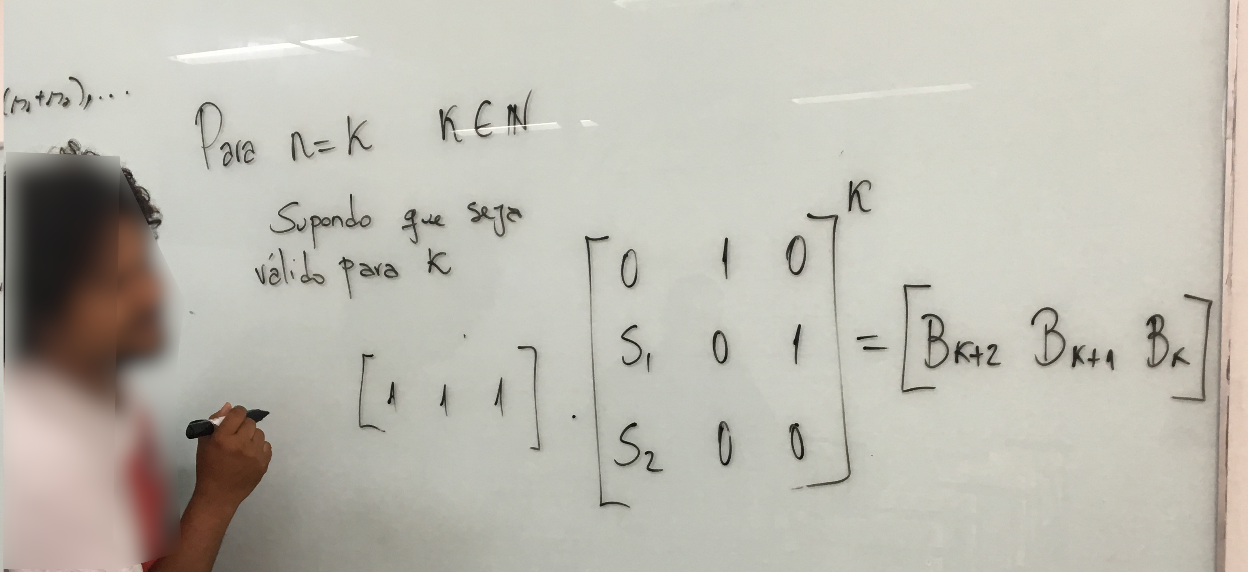 (n₁+n₂),...
Para n=K K∈ℕ
Supondo que seja
válido para K
[1 1 1] · [0 1 0
S₁ 0 1
S₂ 0 0]ᴷ = [B_{K+2} B_{K+1} B_K]